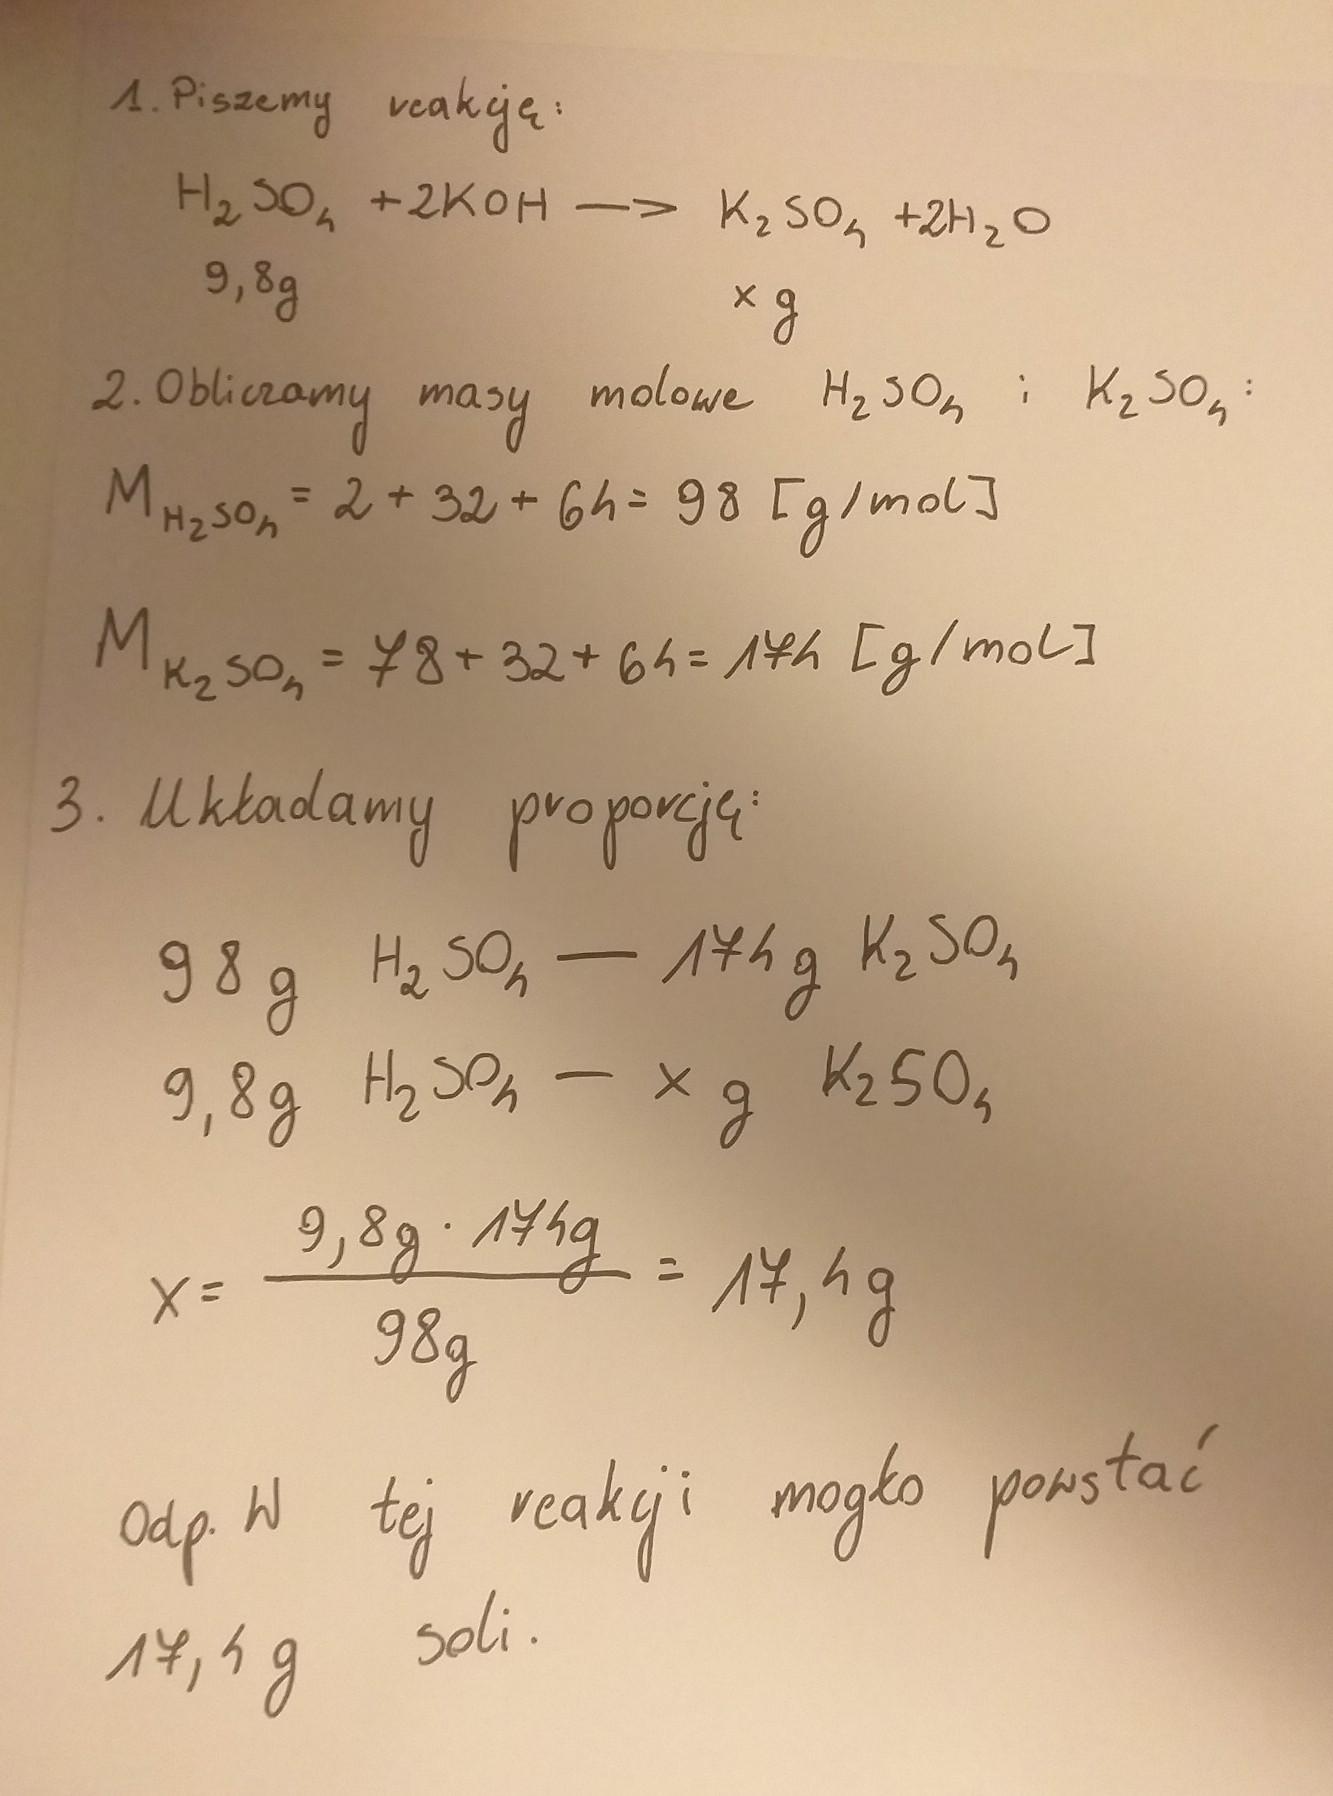 1. Piszemy reakcję:
H₂SO₄ + 2KOH —> K₂SO₄ + 2H₂O
9,8g x g
2. Obliczamy masy molowe H₂SO₄ i K₂SO₄:
M H₂SO₄ = 2 + 32 + 64 = 98 [g/mol]
M K₂SO₄ = 78 + 32 + 64 = 174 [g/mol]
3. Układamy proporcję:
98g H₂SO₄ — 174g K₂SO₄
9,8g H₂SO₄ — x g K₂SO₄
9,8g · 174g
x = = 17,4g
98g
Odp. W tej reakcji mogło powstać
17,4g soli.